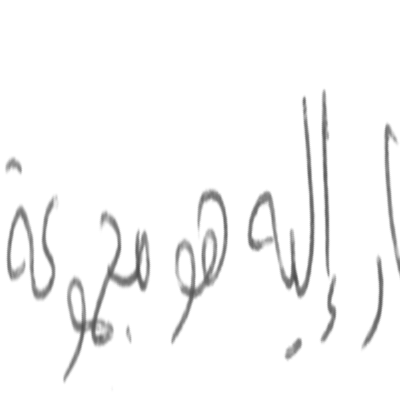 ار إليه هو مجموعة